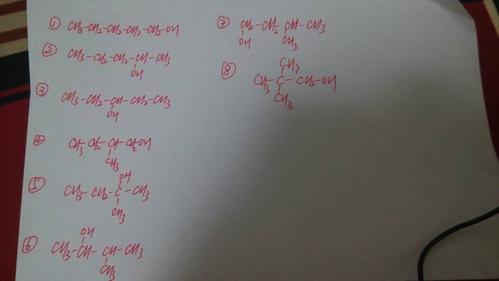 ① CH3-CH2-CH2-CH2-CH2-OH
② CH3-CH2-CH2-CH-CH3
OH
③ CH3-CH2-CH-CH2-CH3
OH
④ CH3 CH2-CH-CH2OH
CH3
OH
⑤ CH3-CH2-C-CH3
CH3
OH
⑥ CH3-CH-CH-CH3
CH3
⑦ CH2-CH2-CH-CH3
OH CH3
CH3
⑧ CH3-C-CH2-OH
CH3